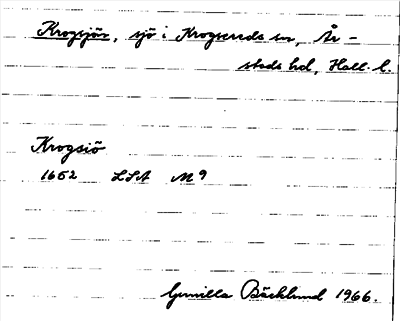 Krogsjön, sjö i Krogsereds sn, År-
stads hd, Hall. l.
Krogsiö
1652 LSA M 9
Gunilla Bäcklund 1966.